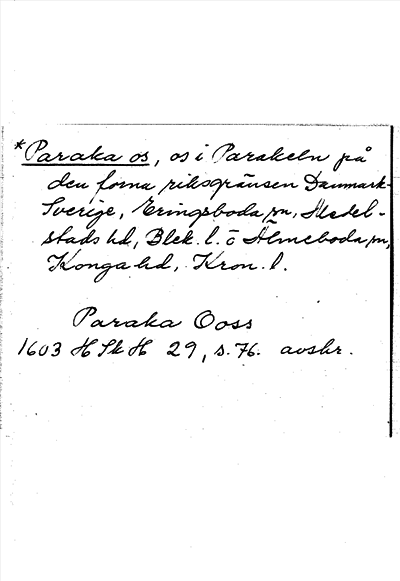 *Paraka os, os i Parakeln på
den forna riksgränsen Danmark-
Sverige, Eringsboda sn, Medel-
stads hd, Blek. l. o Älmeboda sn,
Konga hd, Kron. l.
Paraka Ooss
1603 H Sk H 29, s. 76. avskr.